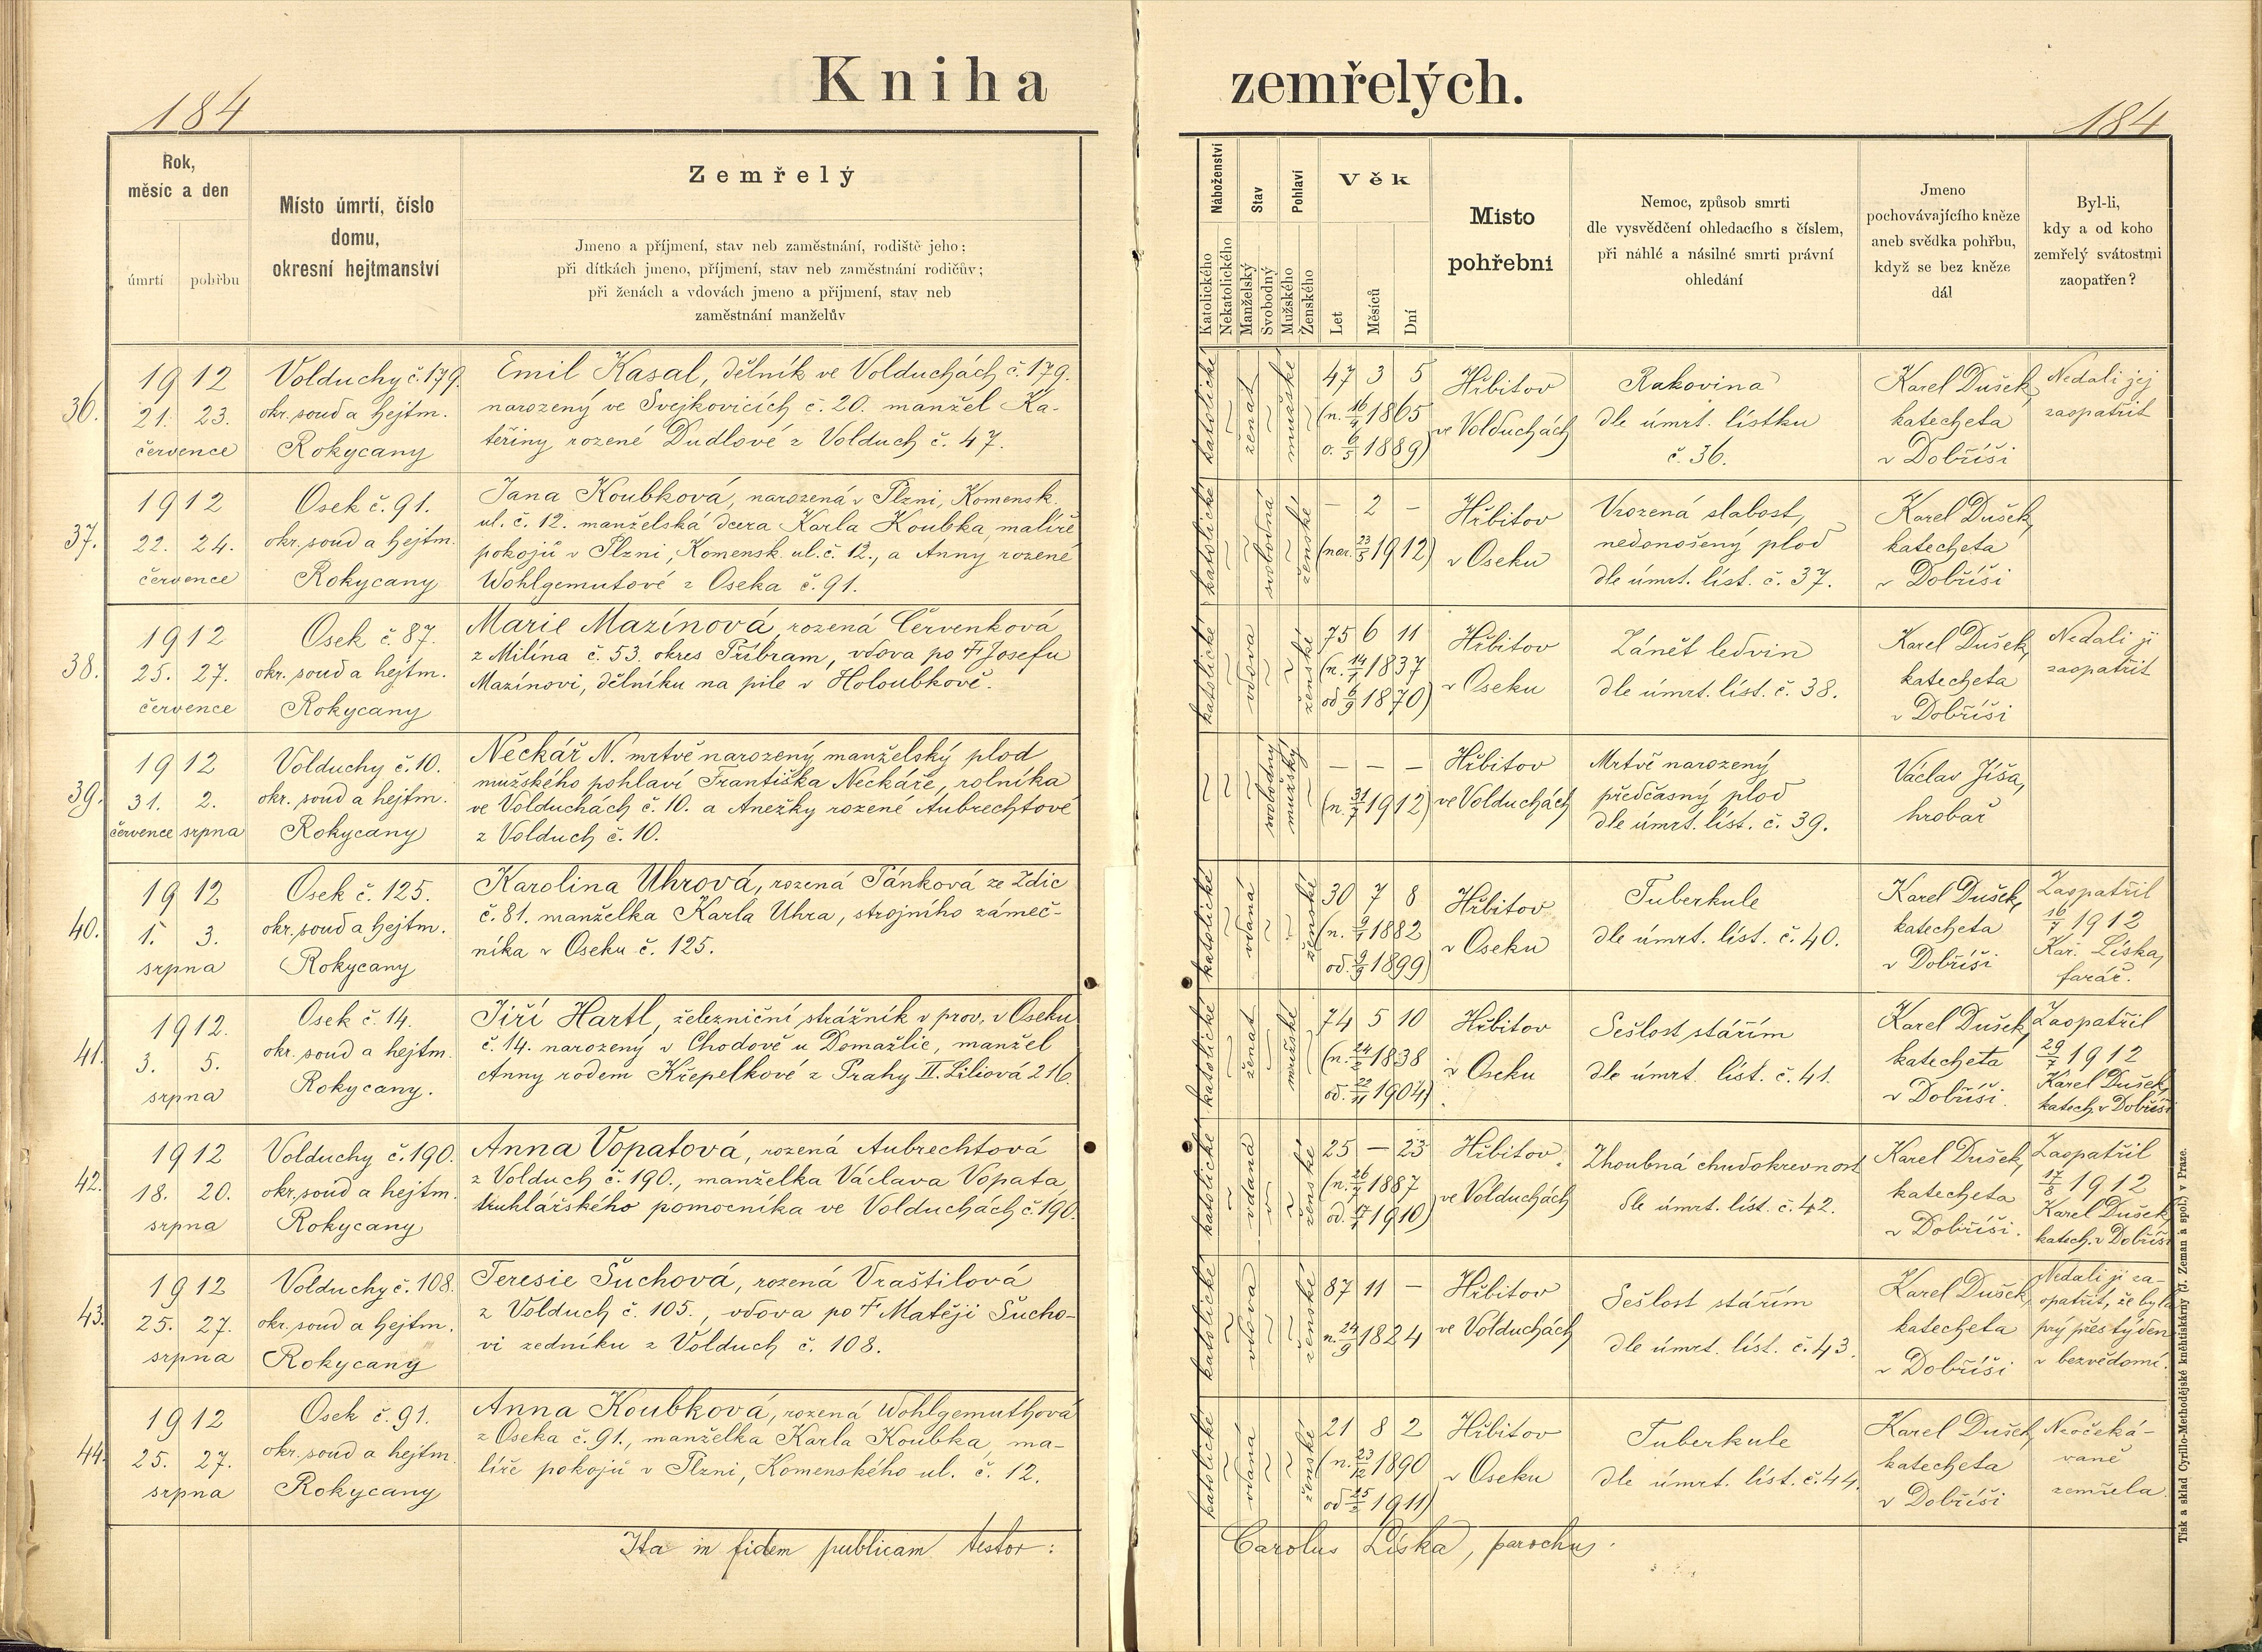 Kniha zemřelých.
184
184
Rok,
měsíc a den
úmrtí
pohřbu
Místo úmrtí, číslo
domu,
okresní hejtmanství
Zemřelý
Jmeno a příjmení, stav neb zaměstnání, rodiště jeho;
při dítkách jmeno, příjmení, stav neb zaměstnání rodičův;
při ženách a vdovách jmeno a přijmení, stav neb
zaměstnání manželův
Náboženství
Katolického
Nekatolického
Stav
Manželský
Svobodný
Pohlaví
Mužského
Ženského
Věk
Let
Měsíců
Dní
Misto
pohřebni
Nemoc, způsob smrti
dle vysvědčení ohledacího s číslem,
při náhlé a násilné smrti právní
ohledání
Jmeno
pochovávajícího kněze
aneb svědka pohřbu,
když se bez kněze
dál
Byl-li,
kdy a od koho
zemřelý svátostmi
zaopatřen?
36.
1912
21. 23.
července
Volduchy č. 179.
okr. soud a hejtm.
Rokycany
Emil Kasal, dělník ve Volduchách č. 179.
narozený ve Svejkovicích č. 20. manžel Ka-
teřiny rozené Dudlové z Volduch č. 47.
katolické
ženat
mužské
47 3 5
(n. 16/4 1865
o. 6/5 1889)
Hřbitov
ve Volduchách
Rakovina
dle úmrt. lístku
č. 36.
Karel Dušek,
katecheta
v Dobříši
Nedali jej
zaopatřit
37.
1912
22. 24.
července
Osek č. 91.
okr. soud a hejtm.
Rokycany
Jana Koubková, narozená v Plzni, Komensk.
ul. č. 12. manželská dcera Karla Koubka, malíře
pokojů v Plzni, Komensk. ul. č. 12., a Anny rozené
Wohlgemutové z Oseka č. 91.
katolické
svobodná
ženské
– 2 –
(nar. 23/5 1912)
Hřbitov
v Oseku
Vrozená slabost,
nedonošený plod
dle úmrt. líst. č. 37.
Karel Dušek,
katecheta
v Dobříši
38.
1912
25. 27.
července
Osek č. 87.
okr. soud a hejtm.
Rokycany
Marie Mazínová, rozená Červenková
z Milína č. 53. okres Příbram, vdova po † Josefu
Mazínovi, dělníku na pile v Holoubkově.
katolické
vdova
ženské
75 6 11
(n. 14/1 1837
od 6/9 1870)
Hřbitov
v Oseku
Zánět ledvin
dle úmrt. líst. č. 38.
Karel Dušek,
katecheta
v Dobříši
Nedali ji
zaopatřit
39.
1912
31. 2.
července srpna
Volduchy č. 10.
okr. soud a hejtm.
Rokycany
Neckář N. mrtvě narozený manželský plod
mužského pohlaví Františka Neckáře, rolníka
ve Volduchách č. 10. a Anežky rozené Aubrechtové
z Volduch č. 10.
svobodný
mužský
– – –
(n. 31/7 1912)
Hřbitov
ve Volduchách
Mrtvě narozený
předčasný plod
dle úmrt. líst. č. 39.
Václav Jíša,
hrobař
40.
1912
1. 3.
srpna
Osek č. 125.
okr. soud a hejtm.
Rokycany
Karolina Uhrová, rozená Pánková ze Zdic
č. 81. manželka Karla Uhra, strojního zámeč-
níka v Oseku č. 125.
katolické
vdaná
ženské
30 7 8
(n. 9/1 1882
od. 9/9 1899)
Hřbitov
v Oseku
Tuberkule
dle úmrt. líst. č. 40.
Karel Dušek,
katecheta
v Dobříši
Zaopatřil
16/7 1912
Kar. Líska,
farář.
41.
1912.
3. 5.
srpna
Osek č. 14.
okr. soud a hejtm.
Rokycany.
Jiří Hartl, železniční strážník v prov. v Oseku
č. 14. narozený v Chodově u Domažlic, manžel
Anny rodem Křepelkové z Prahy II. Liliová 216.
katolické
ženat
mužské
74 5 10
(n. 24/2 1838
od. 22/11 1904)
Hřbitov
v Oseku
Sešlost stářím
dle úmrt. líst. č. 41.
Karel Dušek,
katecheta
v Dobříši.
Zaopatřil
29/7 1912
Karel Dušek,
katech. v Dobříši
42.
1912
18. 20.
srpna
Volduchy č. 190.
okr. soud a hejtm.
Rokycany
Anna Vopatová, rozená Aubrechtová
z Volduch č. 190., manželka Václava Vopata,
truhlářského pomocníka ve Volduchách č. 190.
katolické
vdaná
ženské
25 – 23
(n. 26/7 1887
od. 17/7 1910)
Hřbitov
ve Volduchách
Zhoubná chudokrevnost
dle úmrt. líst. č. 42.
Karel Dušek,
katecheta
v Dobříši.
Zaopatřil
17/8 1912
Karel Dušek,
katech. v Dobříši
43.
1912
25. 27.
srpna
Volduchy č. 108.
okr. soud a hejtm.
Rokycany
Teresie Šuchová, rozená Vraštilová
z Volduch č. 105., vdova po † Matěji Šucho-
vi zedníku z Volduch č. 108.
katolické
vdova
ženské
87 11 –
n. 24/9 1824
Hřbitov
ve Volduchách
Sešlost stářím
dle úmrt. líst. č. 43.
Karel Dušek,
katecheta
v Dobříši
Nedali ji za-
opatřit, že byla
prý přes týden
v bezvědomí.
44.
1912
25. 27.
srpna
Osek č. 91.
okr. soud a hejtm.
Rokycany
Anna Koubková, rozená Wohlgemuthová
z Oseka č. 91., manželka Karla Koubka, ma-
líře pokojů v Plzni, Komenského ul. č. 12.
katolické
vdaná
ženské
21 8 2
(n. 23/12 1890
od 25/2 1911)
Hřbitov
v Oseku
Tuberkule
dle úmrt. líst. č. 44.
Karel Dušek,
katecheta
v Dobříši
Neočeká-
vaně
zemřela
Ita in fidem publicam testor:
Carolus Líska, parochus.
Tisk a sklad Cyrillo-Methodějské kněhtiskárny (J. Zeman a spol.) v Praze.